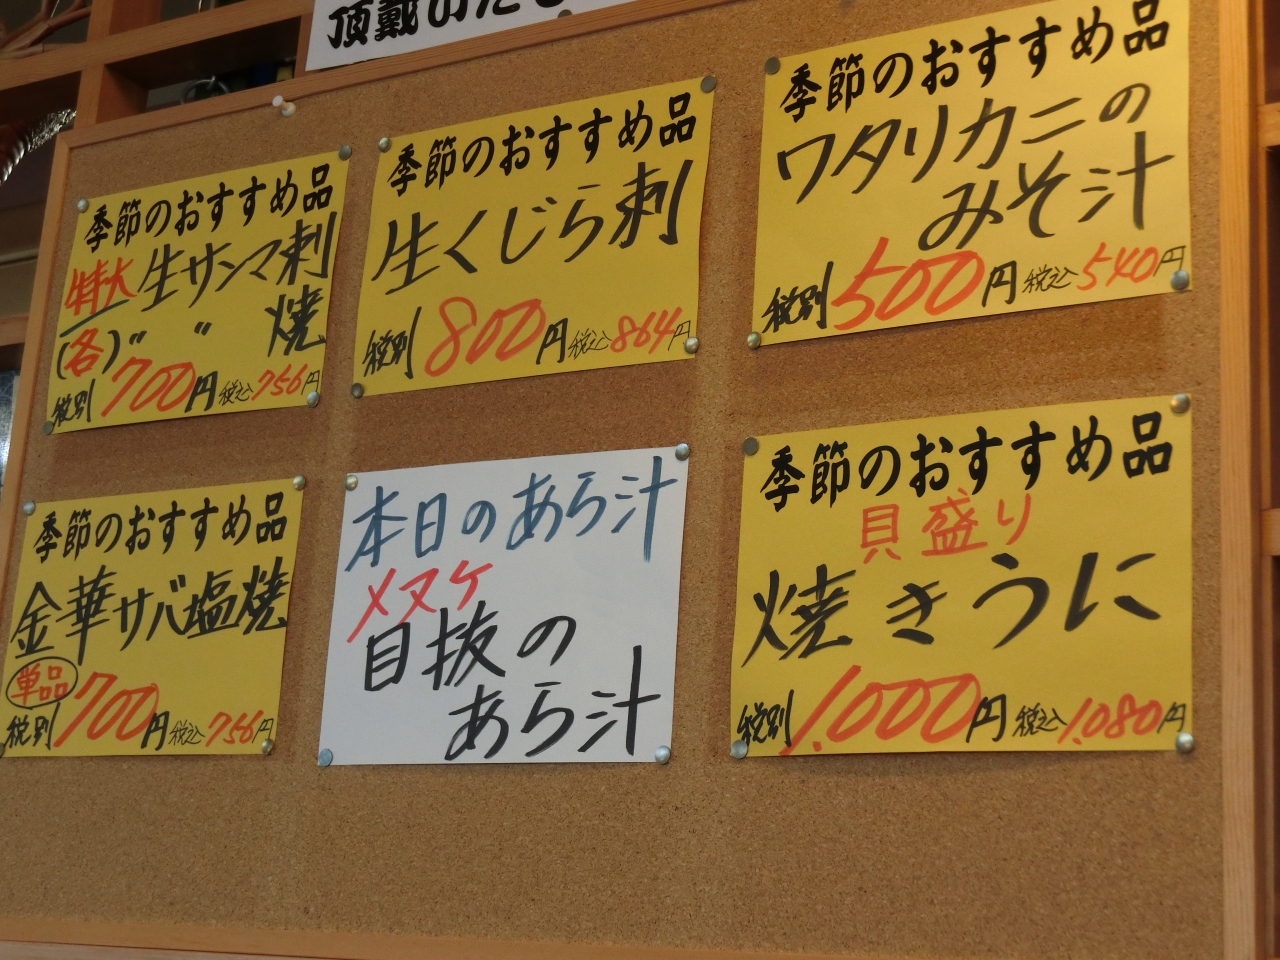 頂戴のた
季節のおすすめ品
特大 生サンマ刺
(各) 〃 〃 焼
税別 700円 税込 756円
季節のおすすめ品
生くじら刺
税別 800円 税込 864円
季節のおすすめ品
ワタリカニの
みそ汁
税別 500円 税込 540円
季節のおすすめ品
金華サバ塩焼
単品
税別 700円 税込 756円
本日のあら汁
メヌケ
目抜の
あら汁
季節のおすすめ品
貝盛り
焼きうに
税別 1,000円 税込 1,080円